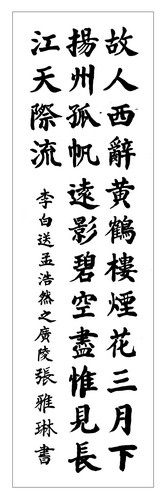 故人西辭黃鶴樓煙花三月下
揚州孤帆遠影碧空盡惟見長
江天際流
李白送孟浩然之廣陵張雅琳書